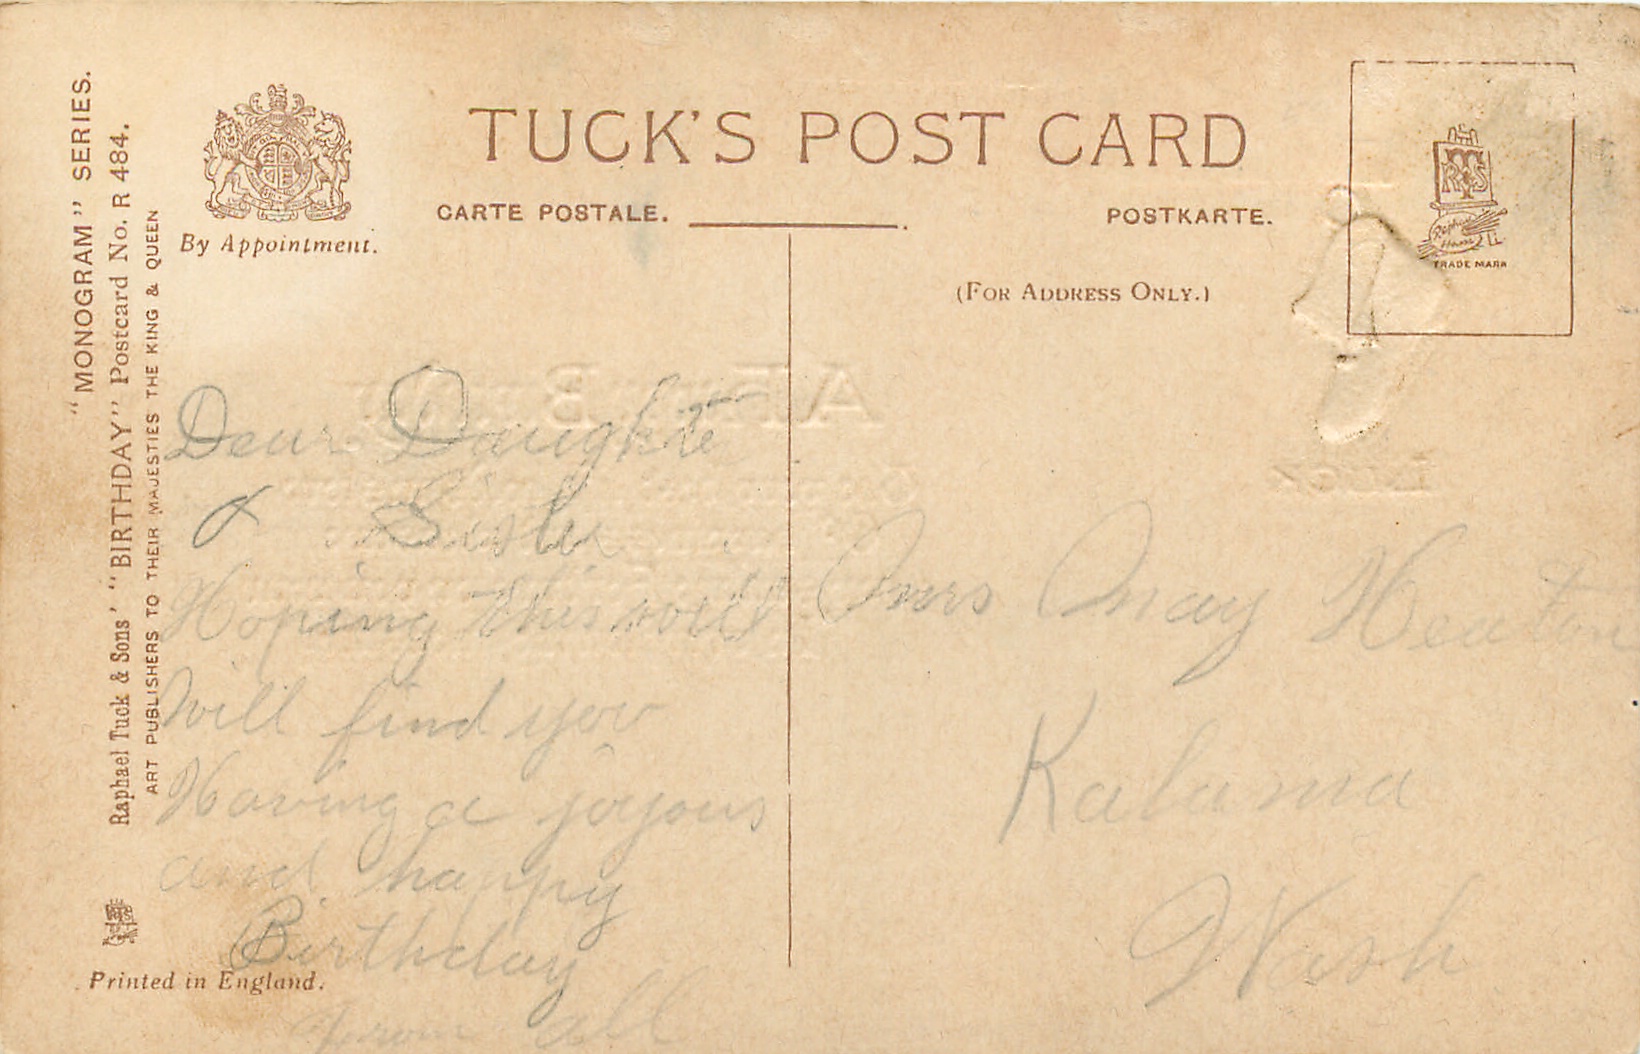 "MONOGRAM" SERIES.
Raphael Tuck & Sons' "BIRTHDAY" Postcard No. R 484.
ART PUBLISHERS TO THEIR MAJESTIES THE KING & QUEEN
By Appointment.
TUCK'S POST CARD
CARTE POSTALE.
POSTKARTE.
(FOR ADDRESS ONLY.)
TRADE MARK
Dear Daughte
& Sister
Hoping this will
will find you
Having a joyous
and happy
Birthday
from all
Mrs May Heaton
Kalama
Wash
Printed in England.